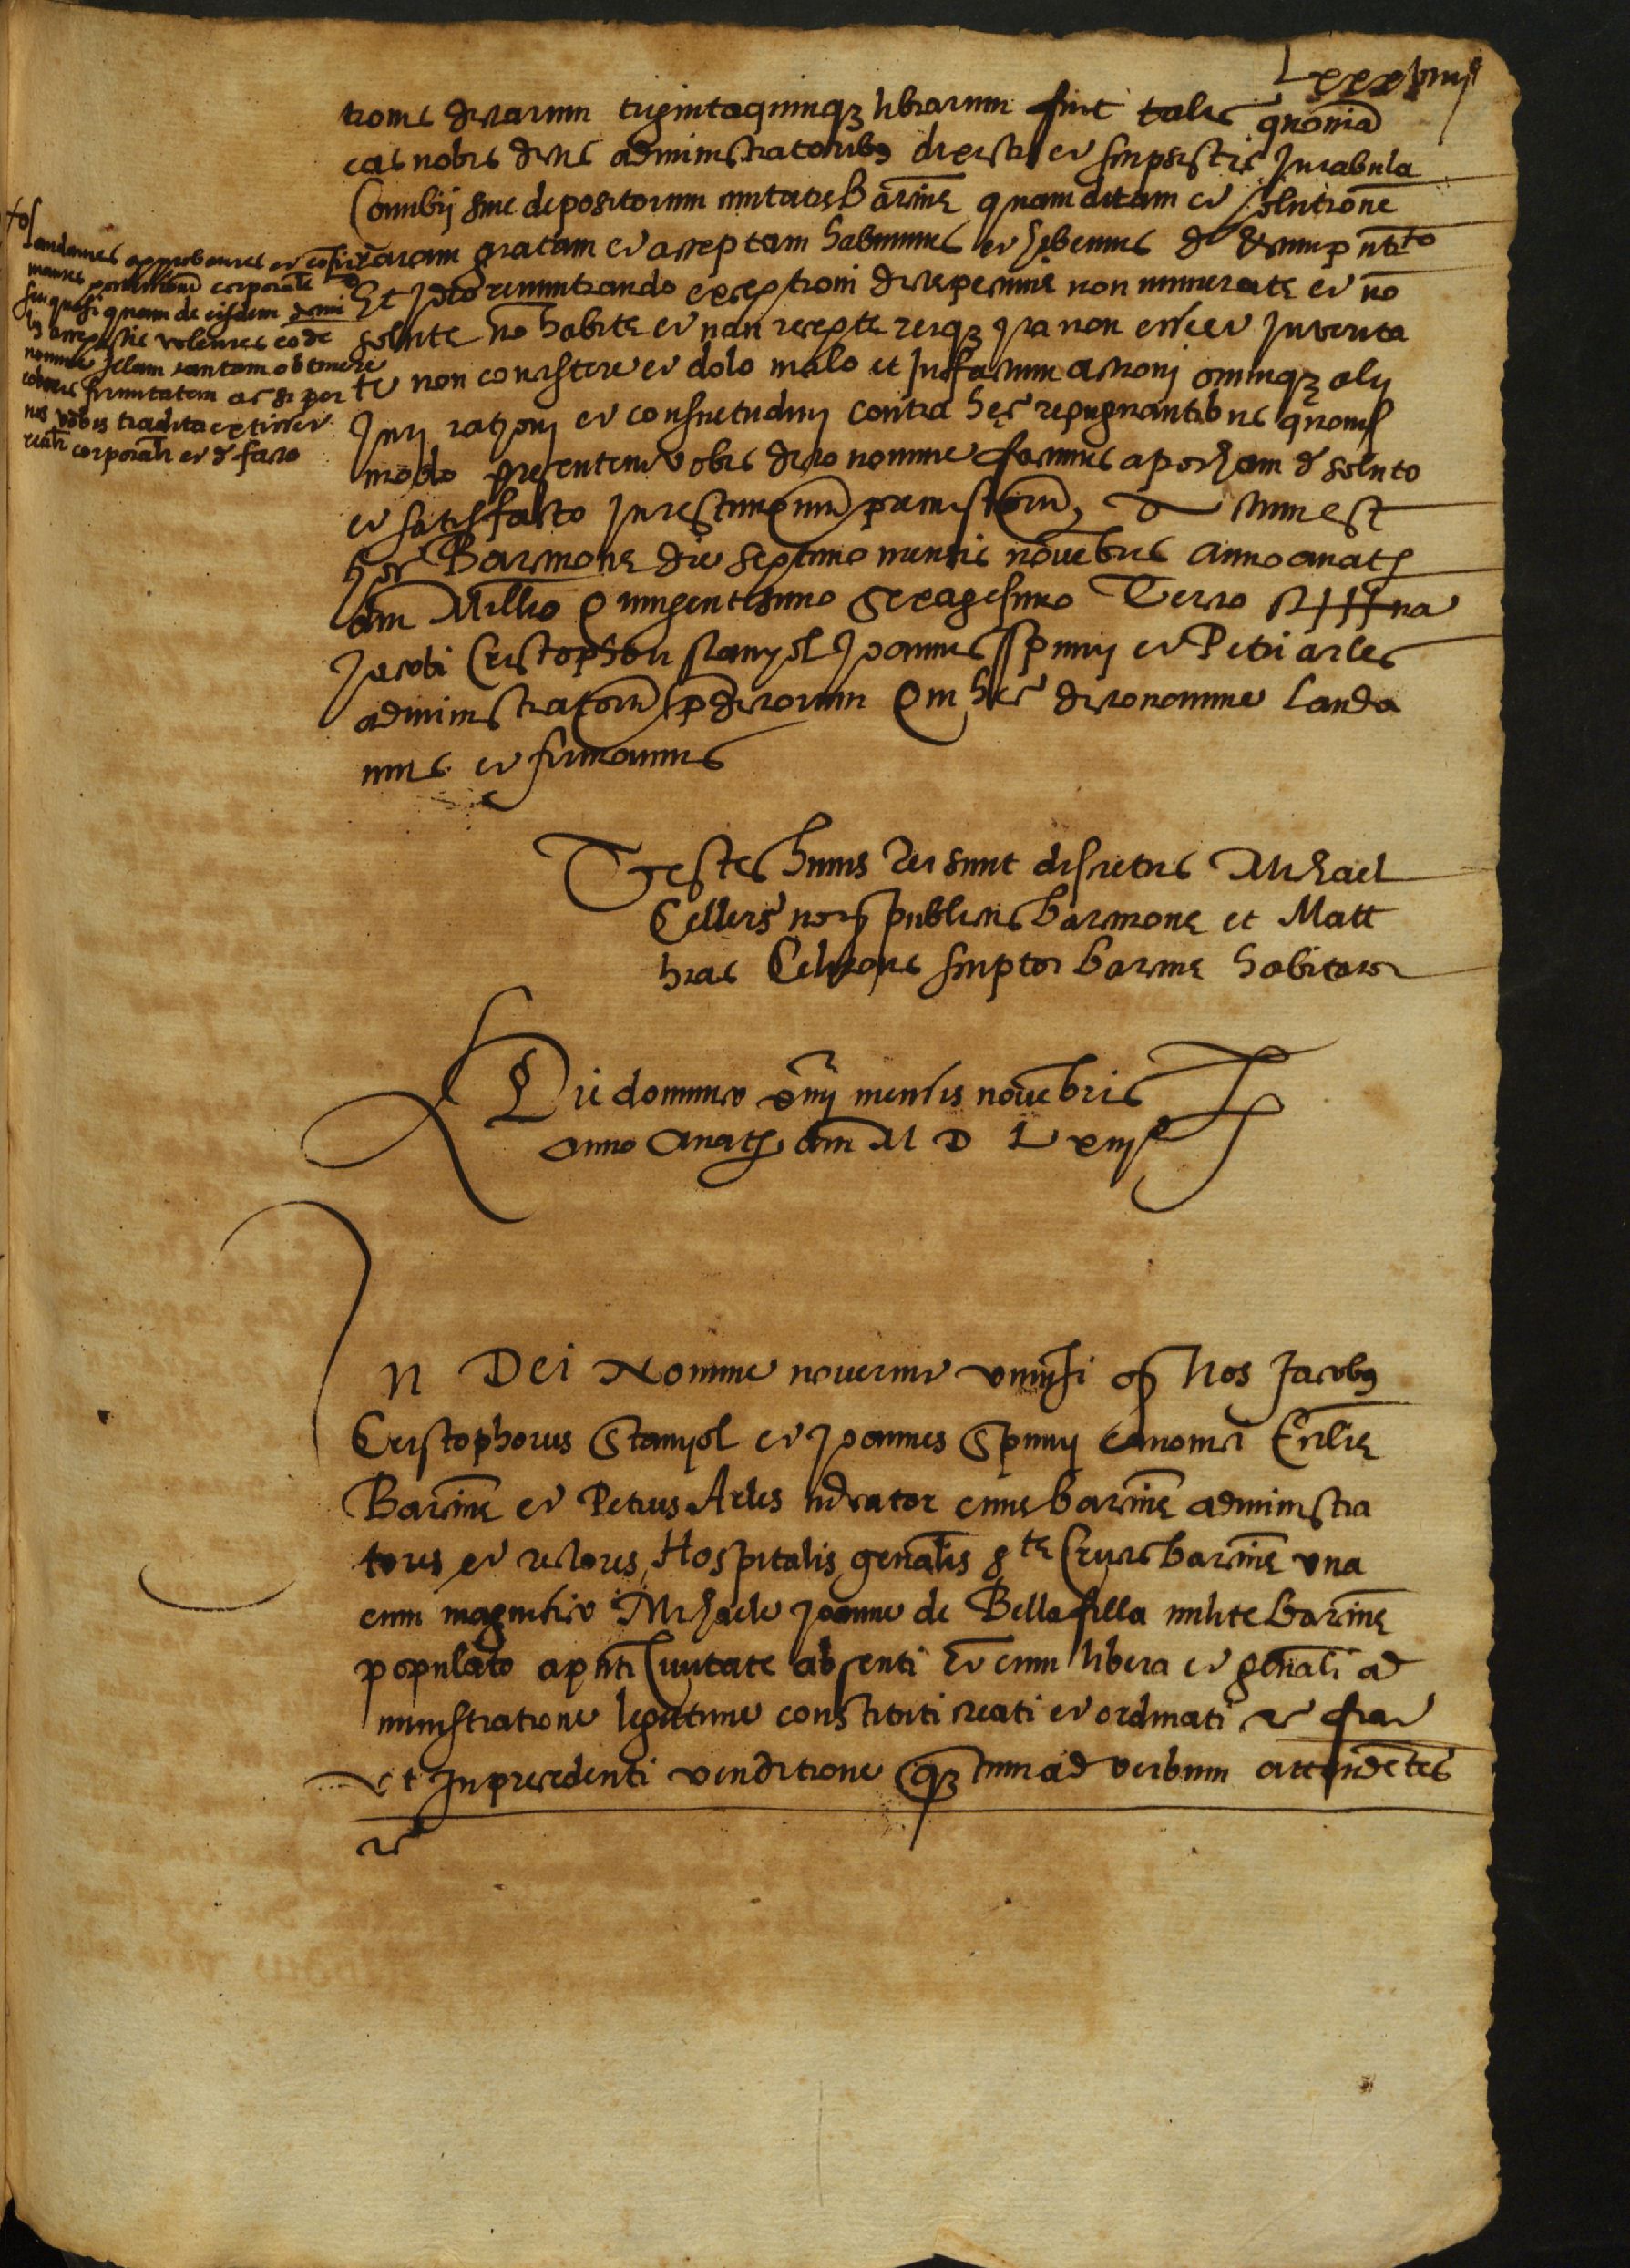 Lxxxviiij
tionis dictarum trigintaquinq3 librarum fuit talis quoniã
eas nobis dictis administratoribus dixistis et scripsistis in tabula
Cambij siue depositorum ciuitatis Barcinẽ quam ditam et solutionẽ
ratam gratam et acceptam habuimus et habemus
Et ideo renuntiando exceptioni dicte pecunie non numerate et nõ
solute nõ habite et non recepte reiq3 ita non esse et in verita
te non consistere et dolo malo et in factum actioni omniq3 alij
Juri rationi et consuetudini contra hec repugnantibus quouis
modo presentem vobis dicto nomine facimus apocham de soluto
et satisfacto in testimoniũ premissorũ Actum est
hoc Barcinone die septimo mensis nouẽbris anno a natẽ
dñi Millio Quingentesimo Sexagesimo Tertio Sig+++na
Jacobi Cristophori stanyol Joannis spuny et Petri arles
administratorũ p̃dictorum Qui hec dicto nomine lauda
mus et firmamus
+os
laudantes approbantes et cõfir
mantes possessionẽ corporalẽ
seu quasi quam de eisdem domi
bus accepistis volentes eode
nomine illam tantam obtinere
roboris firmitatem ac si per
nos vobis tradita extitisset
realr̃ corporalr̃ et de facto
Testes huius rei sunt discretus Michael
Cellers notẽ publicus barcinone et Matt
hias Celirons scriptor barcine habitator
Die dominico xiiij mensis nouẽbris
anno a natẽ dñi M D Lxiijº
In Dei Nomine nouerint vniuersi q Nos Jacobus
Cristophorus Stanyol et Joannes Spuny canonici Ecclie
Barcinẽ et Petrus Arles mercator ciuis barcinẽ administra
tores et rectores Hospitalis genalis Ste Crucis barcinẽ vna
cum magnifico Michaele Joanne de Bellafilla milite barcinẽ
populato a pñti Ciuitate absenti Et cum libera et genali ad
ministratione legittime constituti creati et ordinati etc fiat
vt in precedenti venditione q3 tum ad verbum attendẽtes
etc